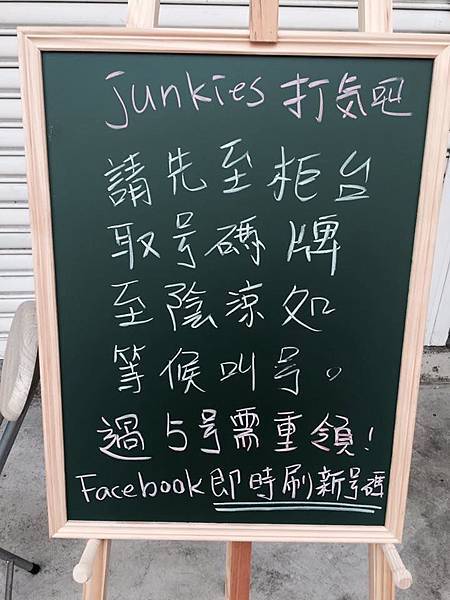 junkies 打気吧
請先至柜台
取号碼牌
至陰涼処
等候叫号。
過5号需重領!
Facebook即時刷新号碼